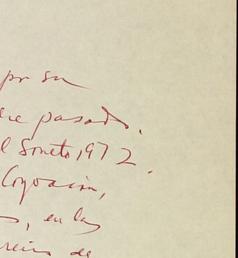 por su
pasado.
l Soneto, 1972.
Coyoacán,
, en las
de